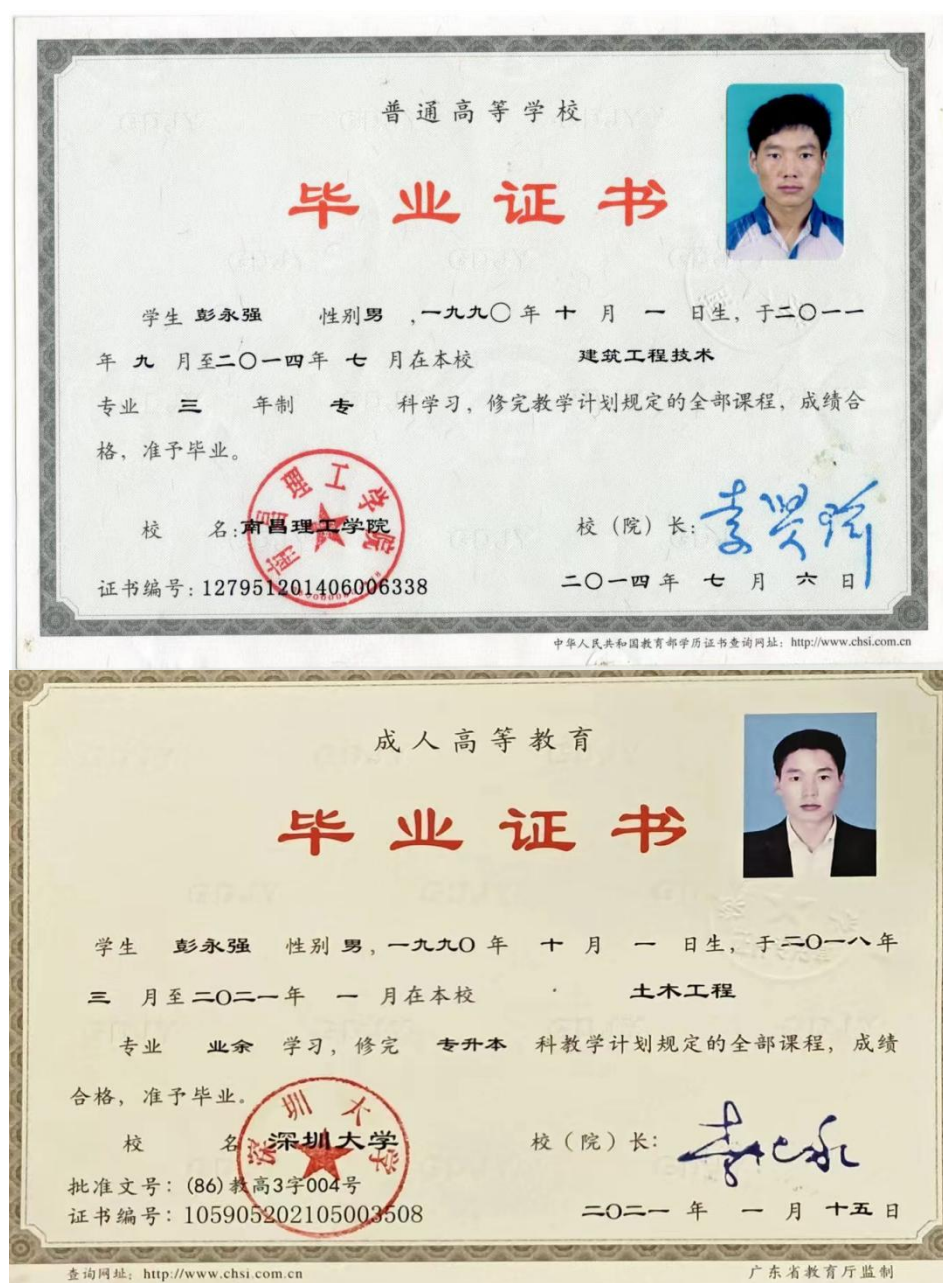 普通高等学校
毕业证书
学生 彭永强 性别男 ,一九九〇年 十 月 一 日生, 于二〇一一
年 九 月至二〇一四年 七 月在本校 建筑工程技术
专业 三 年制 专 科学习, 修完教学计划规定的全部课程, 成绩合
格, 准予毕业。
校 名:南昌理工学院
校（院）长:
证书编号: 127951201406006338
二〇一四年 七 月 六 日
中华人民共和国教育部学历证书查询网址: http://www.chsi.com.cn
成人高等教育
毕业证书
学生 彭永强 性别 男, 一九九〇年 十 月 一 日生, 于二〇一八年
三 月至二〇二一年 一 月在本校 土木工程
专业 业余 学习, 修完 专升本 科教学计划规定的全部课程, 成绩
合格, 准予毕业。
校 名 深圳大学
校（院）长:
批准文号: (86)教高3字004号
证书编号: 105905202105003508
二〇二一 年 一 月 十五 日
查询网址: http://www.chsi.com.cn
广东省教育厅监制